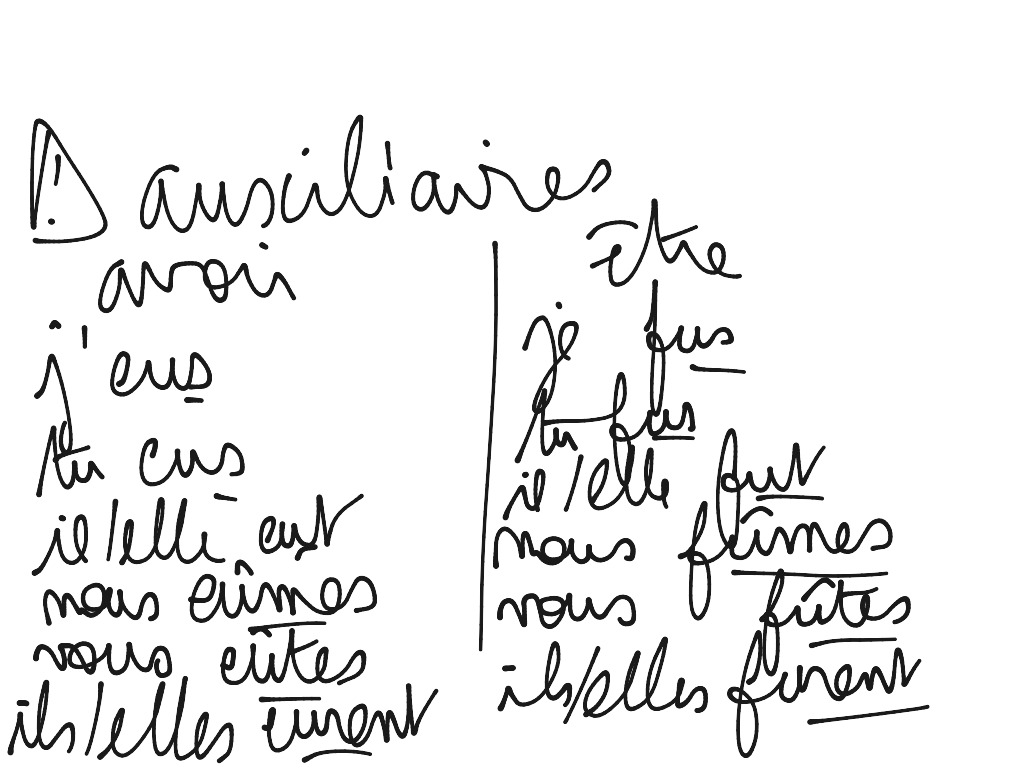 ! auxiliaires
avoir
j'eus
tu eus
il/elle eut
nous eûmes
vous eûtes
ils/elles eurent
être
je fus
tu fus
il/elle fut
nous fûmes
vous fûtes
ils/elles furent